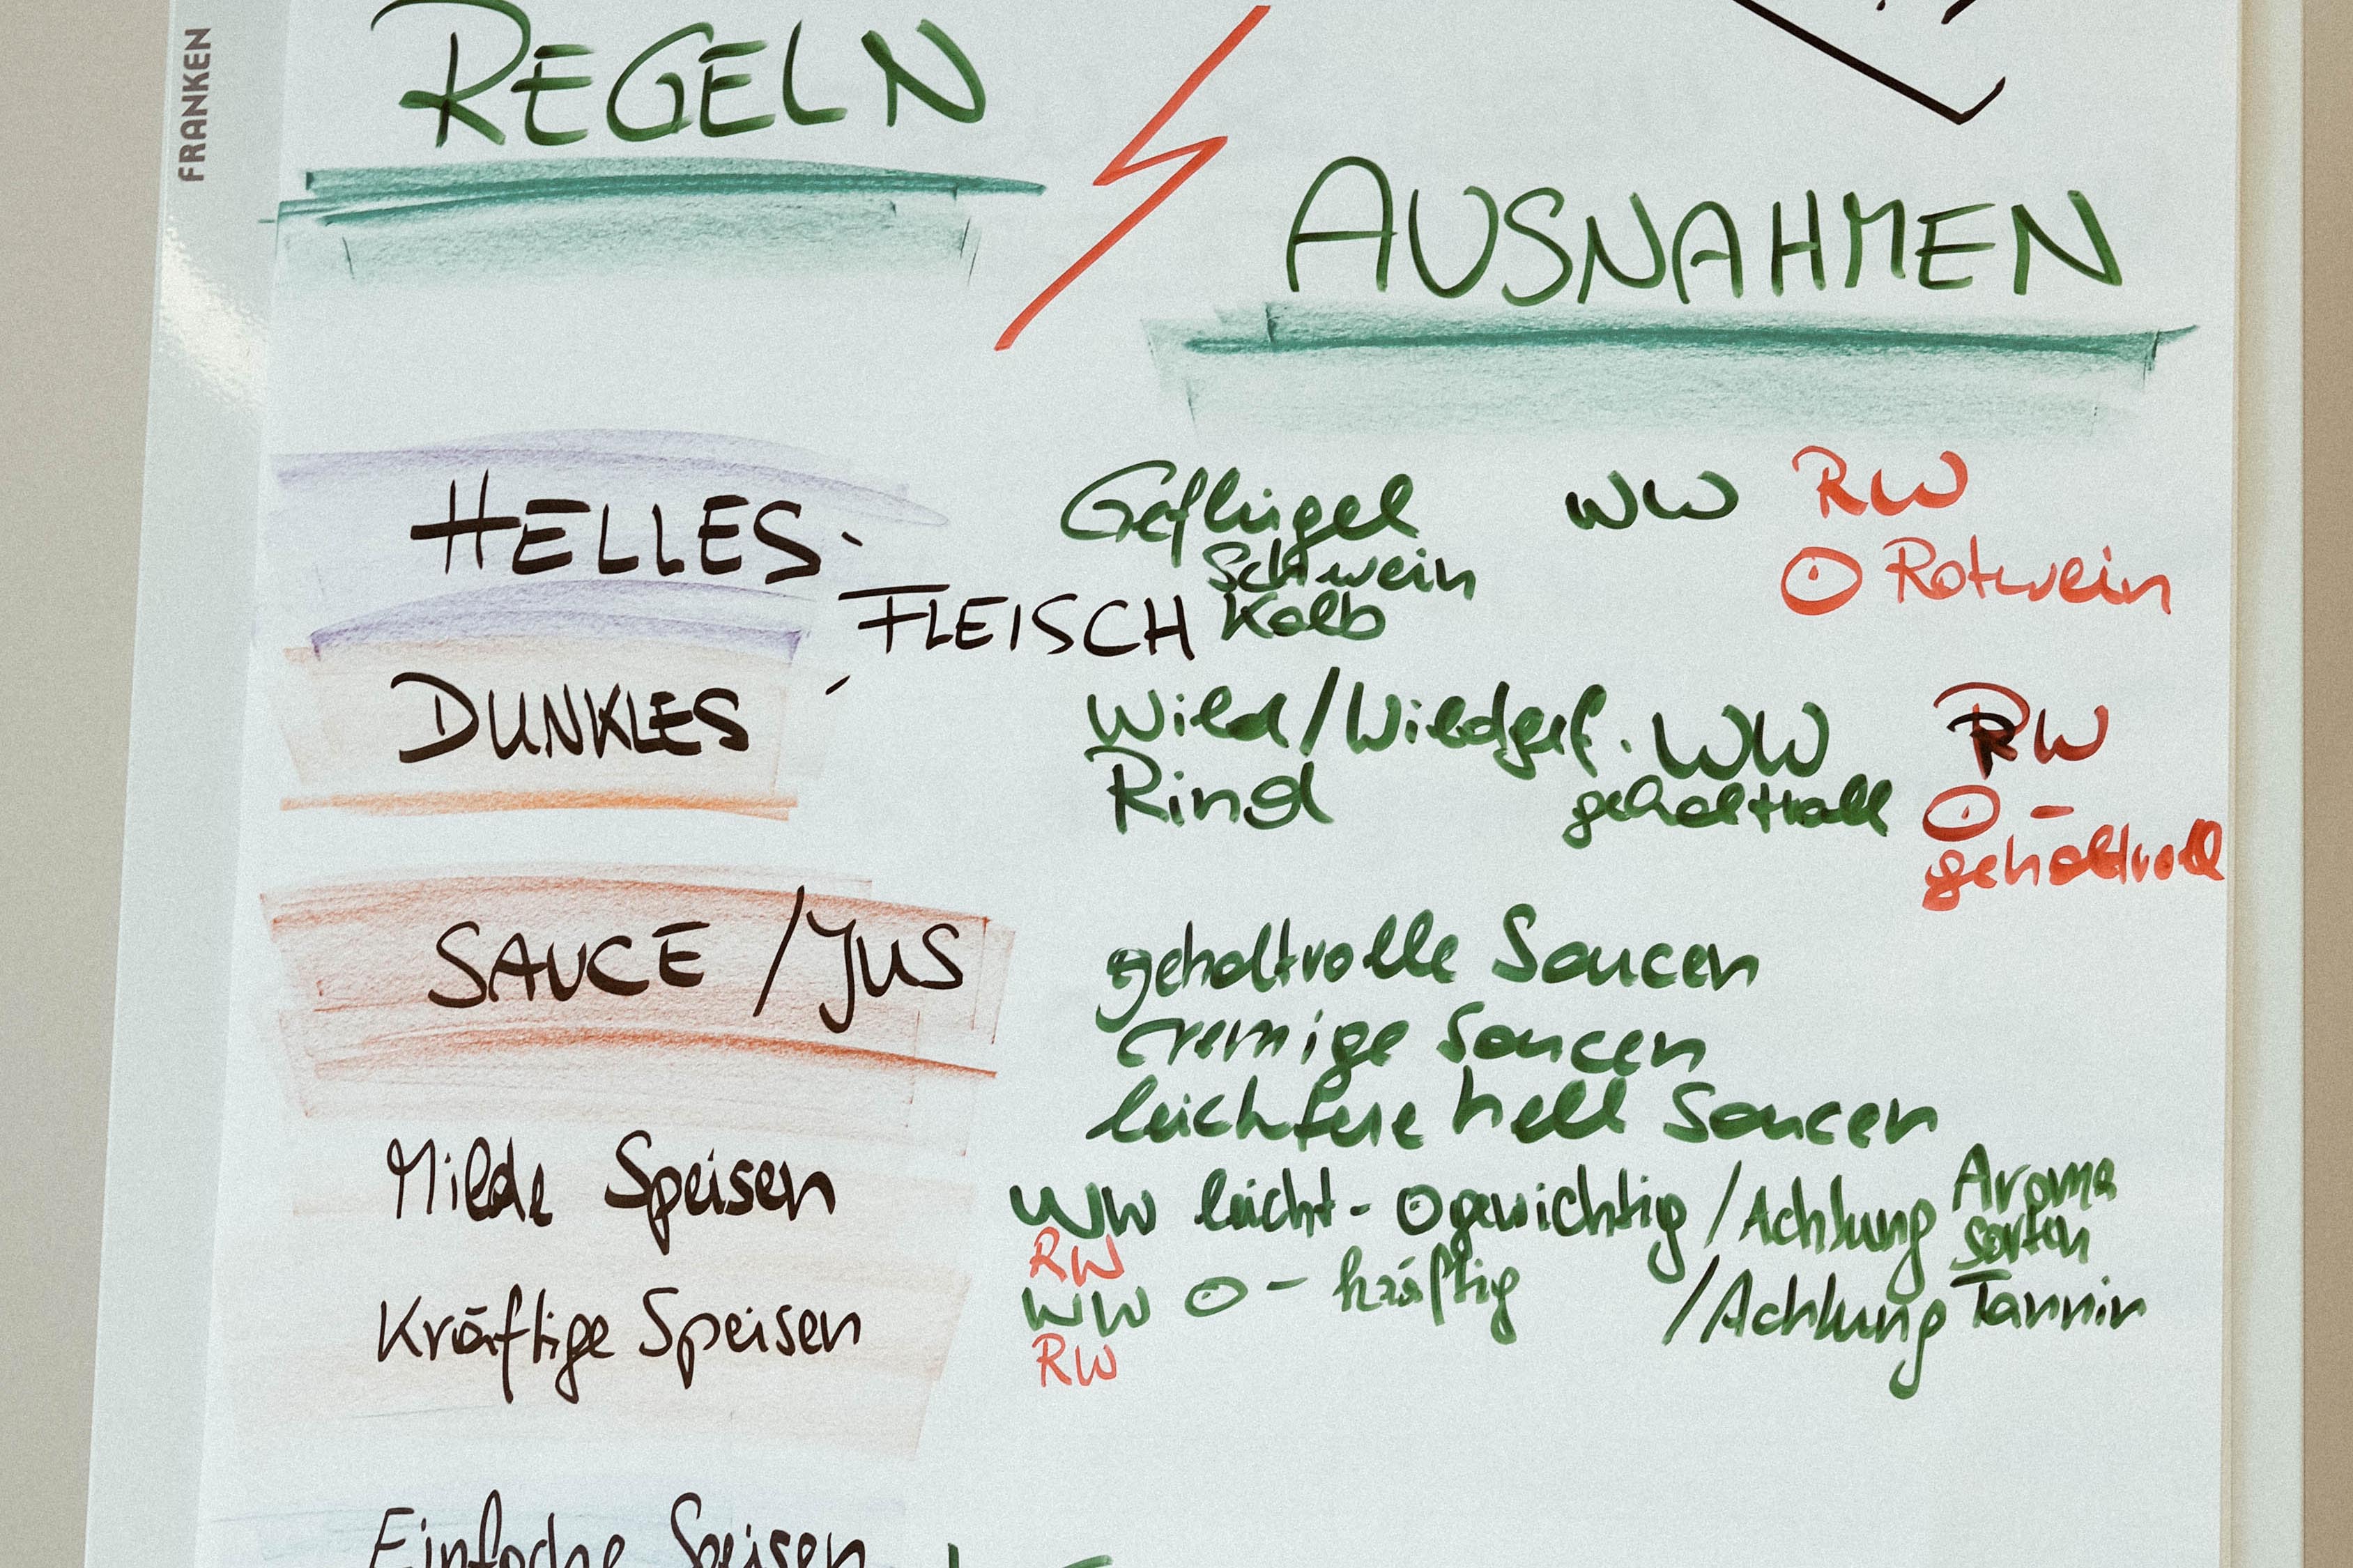 FRANKEN
REGELN
AUSNAHMEN
HELLES
Geflügel WW RW
Schwein
⊙ Rotwein
FLEISCH Kalb
DUNKLES
Wild/Wildgef. WW RW
Rind gehaltvoll ⊙ -
gehaltvoll
SAUCE / JUS
gehaltvolle Saucen
cremige Saucen
leichtere hell Saucen
Milde Speisen
WW leicht - ⊙gewichtig / Achtung Aroma
sorten
RW
Kräftige Speisen
WW ⊙ - kräftig / Achtung Tannin
RW
Einfache Speisen